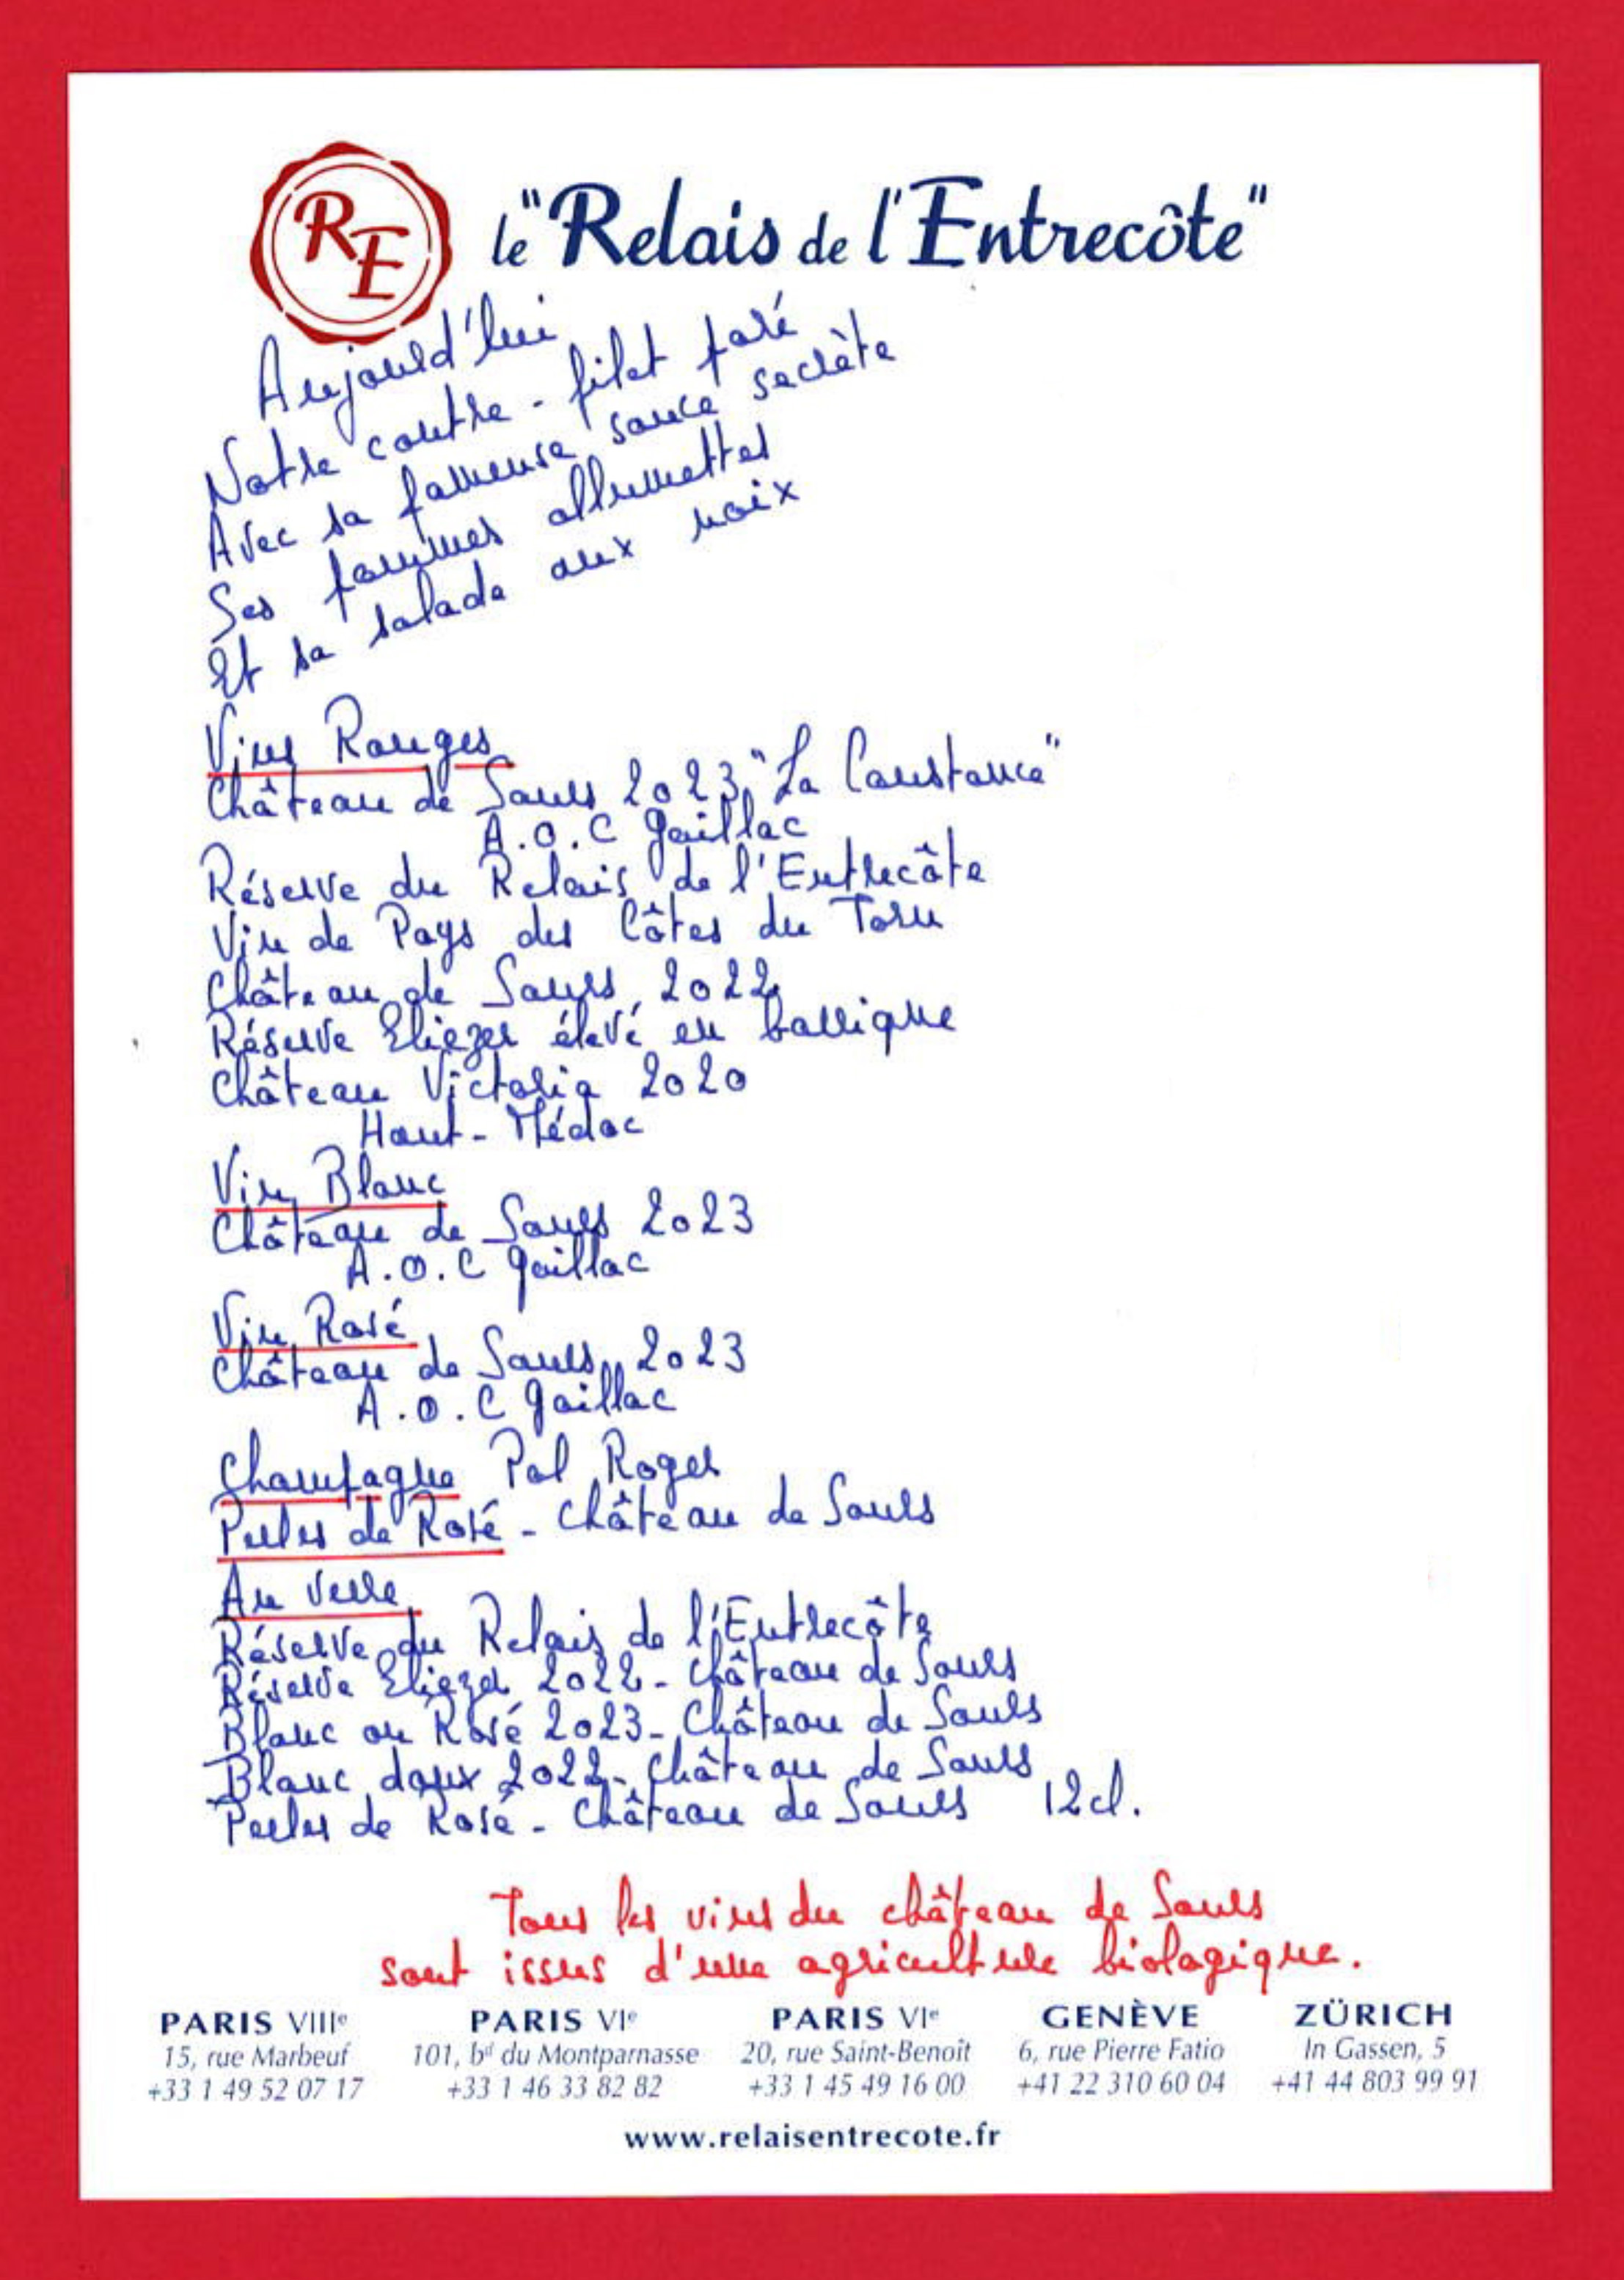 RE
le "Relais de l'Entrecôte"
Aujourd'hui
Notre contre-filet paré
Avec sa fameuse sauce secrète
Ses pommes allumettes
Et sa salade aux noix
Vins Rouges
Château de Saurs 2023 "La Constance"
A.O.C Gaillac
Réserve du Relais de l'Entrecôte
Vin de Pays des Côtes du Tarn
Château de Saurs 2022
Réserve Eliezer élevé en barrique
Château Victoria 2020
Haut-Médoc
Vin Blanc
Château de Saurs 2023
A.O.C Gaillac
Vin Rosé
Château de Saurs 2023
A.O.C Gaillac
Champagne Pol Roger
Perles de Rosé - Château de Saurs
Au Verre
Réserve du Relais de l'Entrecôte
Réserve Eliezer 2022 - Château de Saurs
Blanc ou Rosé 2023 - Château de Saurs
Blanc doux 2022 - Château de Saurs
Perles de Rosé - Château de Saurs 12cl.
Tous les vins du château de Saurs
sont issus d'une agriculture biologique.
PARIS VIIIe PARIS VIe PARIS VIe GENÈVE ZÜRICH
15, rue Marbeuf 101, bd du Montparnasse 20, rue Saint-Benoît 6, rue Pierre Fatio In Gassen, 5
+33 1 49 52 07 17 +33 1 46 33 82 82 +33 1 45 49 16 00 +41 22 310 60 04 +41 44 803 99 91
www.relaisentrecote.fr